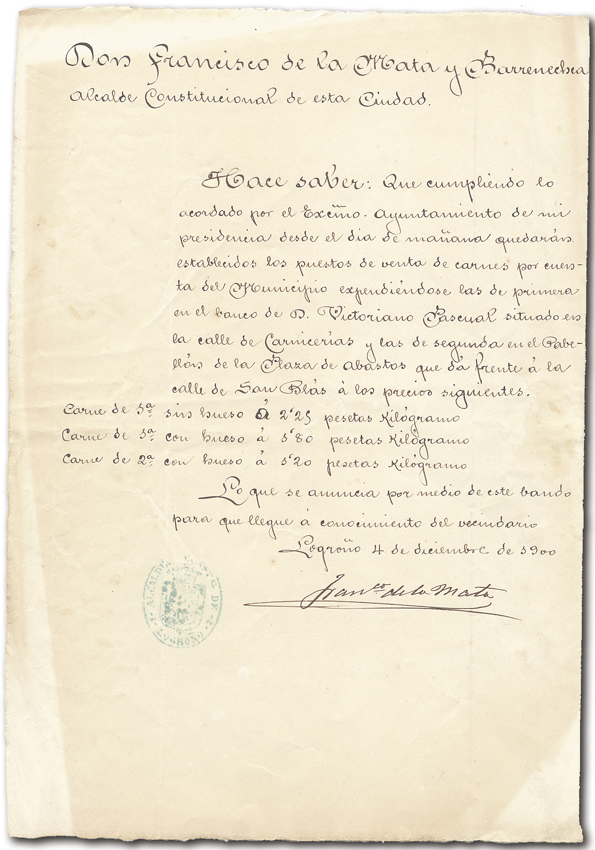 Don Francisco de la Mata y Barrenechea
Alcalde Constitucional de esta Ciudad.
Hace saber: Que cumpliendo lo
acordado por el Excmo. Ayuntamiento de mi
presidencia desde el dia de mañana quedarán
establecidos los puestos de venta de carnes por cuen-
ta del Municipio expendiéndose las de primera
en el banco de D. Victoriano Pascual situado en
la calle de Carnicerías y las de segunda en el Pabe-
llón de la Plaza de abastos que dá frente á la
calle de San Blás á los precios siguientes.
Carne de 1ª sin hueso á 2'25 pesetas Kilógramo
Carne de 1ª con hueso á 1'80 pesetas Kilógramo
Carne de 2ª con hueso á 1'20 pesetas Kilógramo
Lo que se anuncia por medio de este bando
para que llegue á conocimiento del vecindario
Logroño 4 de diciembre de 1900
Franco de la Mata
ALCALDIA DE LOGROÑO